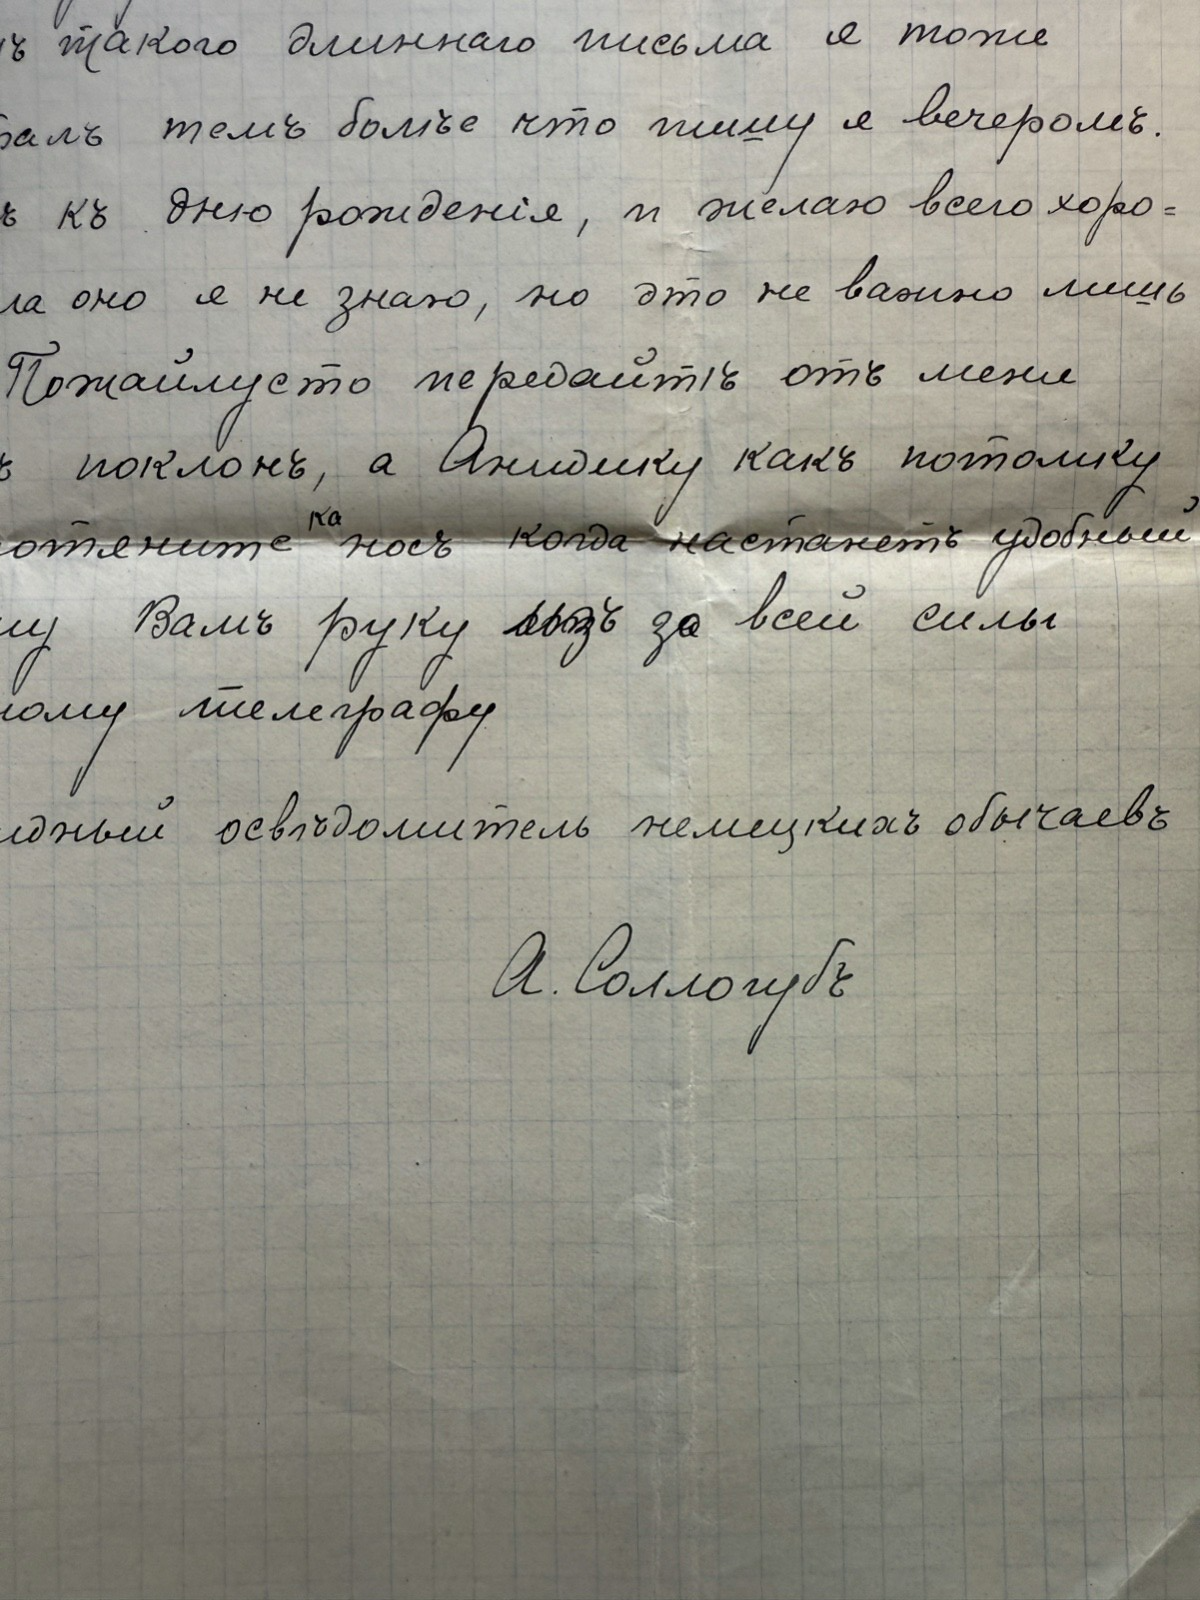 такого длиннаго письма я тоже
темъ болѣе что пишу я вечеромъ.
къ дню рожденія, и желаю всего хоро=
ла оно я не знаю, но это не важно лишь
Пожайлусто передайтѣ отъ меня
поклонъ, а Анидику какъ потомку
потяните ка носъ когда настанетъ удобный
му Вамъ руку за всей силы
ному телеграфу
идный освѣдомитель немецкихъ обычаевъ
А. Соллогубъ